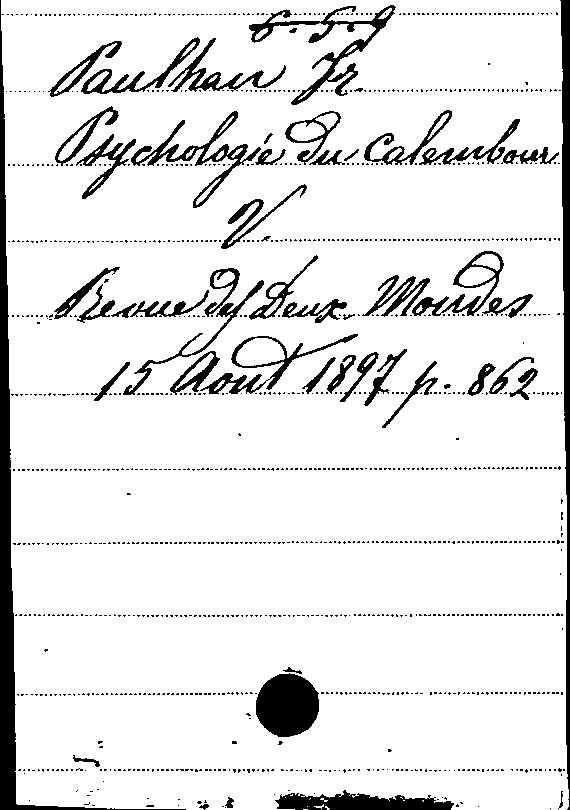 6. 5. 9
Paulhan Fr.
Psychologie du Calembour
V.
Revue des Deux Mondes
15 Aout 1897 p. 862